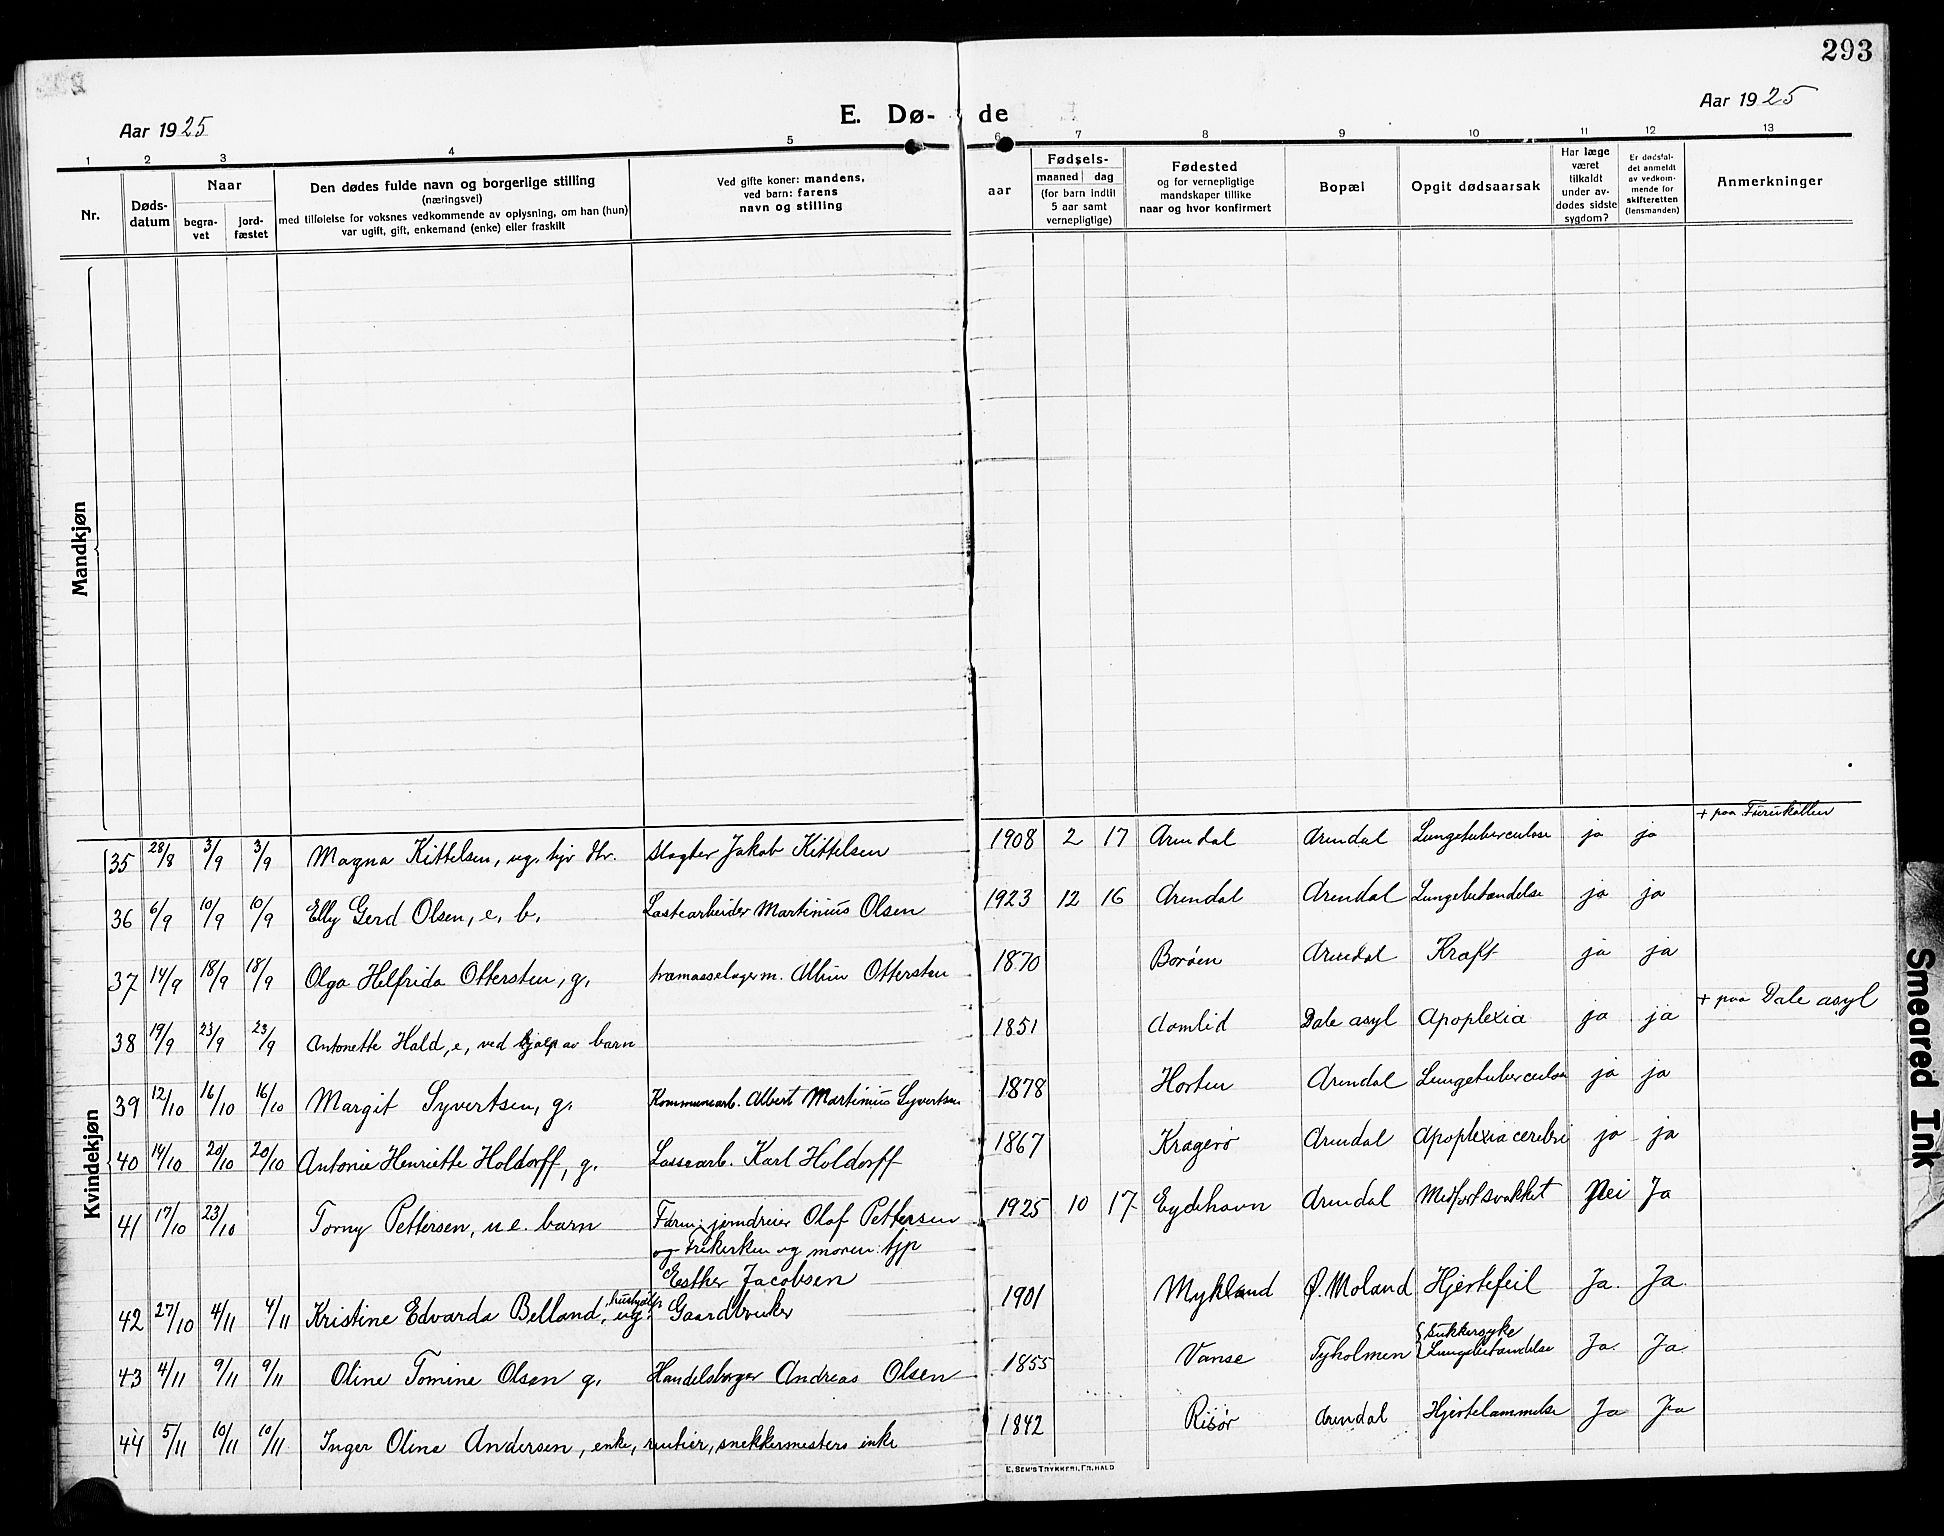 293
Aar 1925
E. Dø- de
Aar 1925
1 2 3 4 5 6 7 8 9 10 11 12 13
Nr.
Døds-
datum
Naar
begra-
vet
jord-
fæstet
Den dødes fulde navn og borgerlige stilling
(næringsvei)
med tilføielse for voksnes vedkommende av oplysning, om han (hun)
var ugift, gift, enkemand (enke) eller fraskilt
Ved gifte koner: mandens,
ved barn: farens
navn og stilling
aar
Fødsels-
maaned dag
(for barn indtil
5 aar samt
vernepligtige)
Fødested
og for vernepligtige
mandskaper tillike
naar og hvor konfirmert
Bopæl
Opgit dødsaarsak
Har læge
været
tilkaldt
under av-
dødes sidste
sygdom?
Er dødsfal-
det anmeldt
av vedkom-
mende for
skifteretten
(lensmanden)
Anmerkninger
Mandkjøn
Kvindekjøn
+ paa Furukollen
35 28/8 3/9 3/9 Magna Kittelsen, ug. hjv. dtr. Slagter Jakob Kittelsen 1908 2 17 Arendal Arendal Lungetuberculose ja ja
36 6/9 10/9 10/9 Elly Gerd Olsen, e. b. Lastearbeider Martinius Olsen 1923 12 16 Arendal Arendal Lungebetændelse ja ja
37 14/9 18/9 18/9 Olga Helfrida Ottersten, g. træmasselager m. Albin Ottersten 1870 Borøen Arendal Kræft ja ja
38 19/9 23/9 23/9 Antonette Hald, e, ved hjælp av barn 1851 Aamlid Dale asyl Apoplexia ja ja + paa Dale asyl
39 12/10 16/10 16/10 Margit Syvertsen, g. Kommunearb. Albert Martinius Syvertsen 1878 Horten Arendal Lungetuberculose ja ja
40 14/10 20/10 20/10 Antonie Henriette Holdorff, g. Lossearb. Karl Holdorff 1867 Kragerø Arendal Apoplexia cerebri ja ja
41 17/10 23/10 Torny Pettersen, u e. barn Farm: jerndreier Olaf Pettersen 1925 10 17 Eydehavn Arendal Medfødt svakhet Nei Ja
og Frikirken og moren: tjp
Esther Jacobsen
42 27/10 4/11 4/11 Kristine Edvarda Belland, hushjælp ug. Gaardbruker 1901 Mykland Ø. Moland Hjertefeil Ja. Ja.
43 4/11 9/11 9/11 Oline Tomine Olsen g. Handelsborger Andreas Olsen 1855 Vanse Tyholmen Sukkersyke Lungebetændelse Ja. Ja
44 5/11 10/11 10/11 Inger Oline Andersen, enke, rentier, snekkermesters enke 1842 Risør Arendal Hjertelammelse Ja Ja
E. SEM'S TRYKKERI, FR. HALD
Smeared Ink